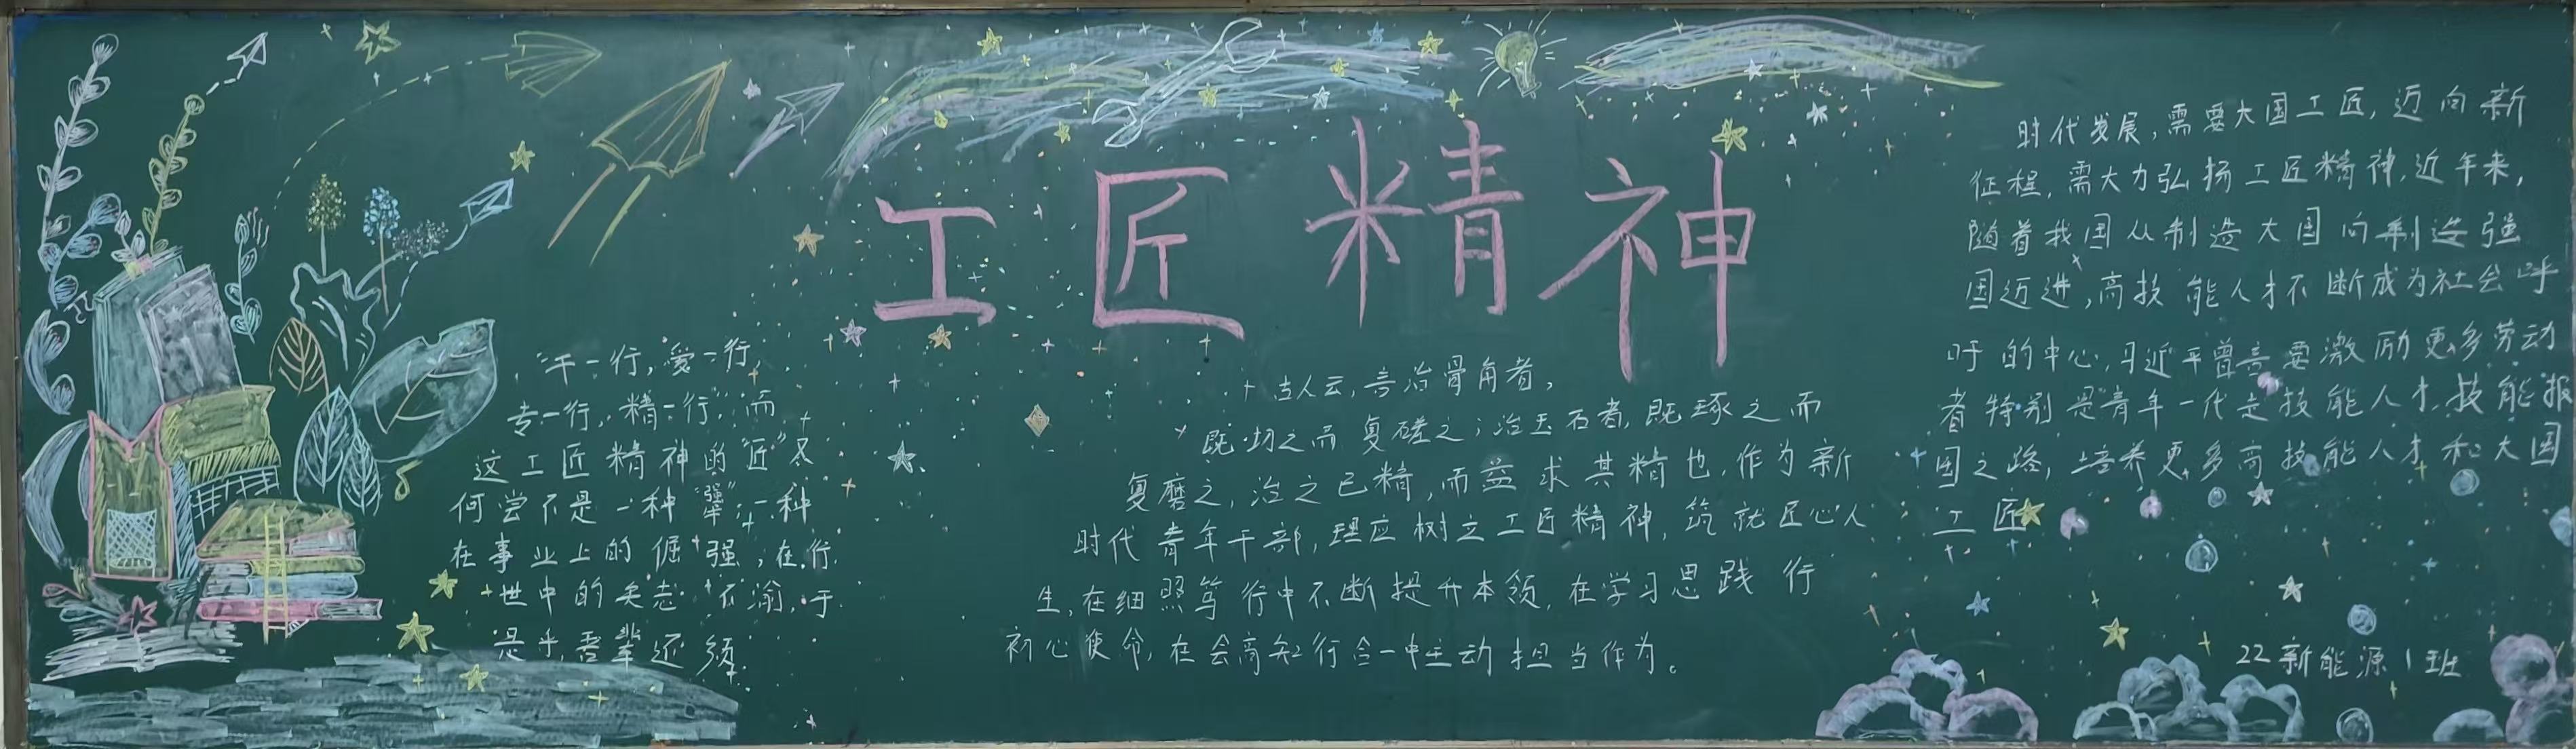 工匠精神
"干一行,爱一行,
专一行,精一行",而
这工匠精神的"匠"
何尝不是一种"强犟",一种
在事业上的倔强,在行
世中的矢志不渝,于
是乎,吾辈还须
古人云,言治骨角者,
既切之而复磋之;治玉石者,既琢之而
复磨之,治之已精,而益求其精也,作为新
时代青年干部,理应树立工匠精神,筑就匠心人
生,在细照笃行中不断提升本领,在学习思践行
初心使命,在会高知行合一中主动担当作为。
时代发展,需要大国工匠,迈向新
征程,需大力弘扬工匠精神,近年来,
随着我国从制造大国向制造强
国迈进,高技能人才不断成为社会呼
吁的中心,习近平曾言要激励更多劳动
者特别是青年一代走技能人才,技能报
国之路,培养更多高技能人才和大国
工匠
22新能源1班